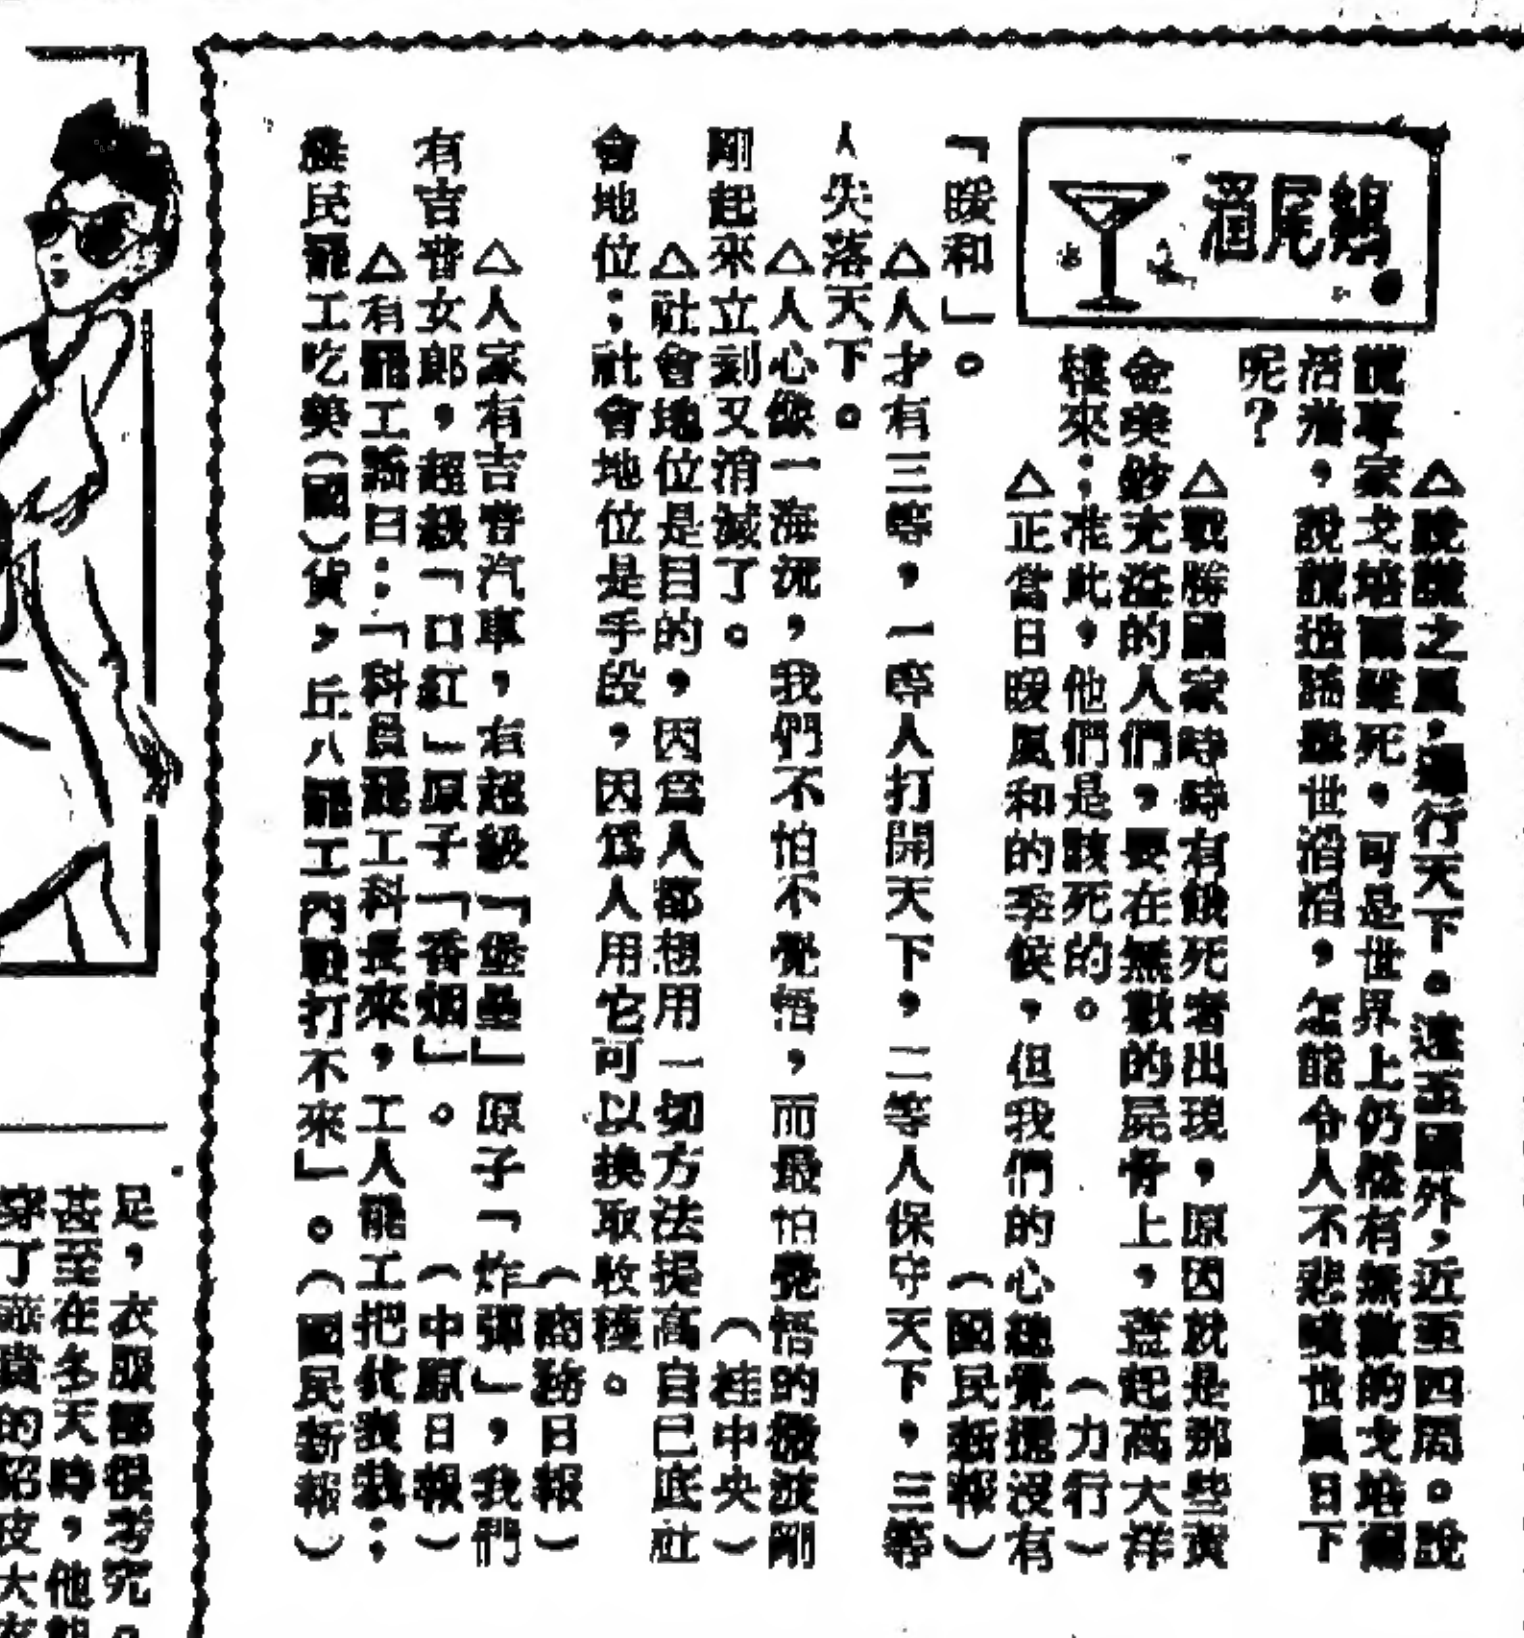 鷄尾酒
△說謊之風，遍行天下。遠至國外，近至四周。說
謊專家戈培爾雖死，可是世界上仍然有無數的戈培爾
活着，說謊造謠擾世滔滔，怎能令人不悲嘆世風日下
呢？
△戰勝國家時時有餓死者出現，原因就是那些黃
金美鈔充溢的人們，要在無數的屍骨上，蓋起高大洋
樓來；准此，他們是該死的。（力行）
△正當日暖風和的季候，但我們的心總覺還沒有
「暖和」。（國民新報）
△人才有三等，一等人打開天下，二等人保守天下，三等
人失落天下。
△人心像一海洗，我們不怕不覺悟，而最怕覺悟的微波剛
剛起來立刻又消滅了。（桂中央）
△社會地位是目的，因爲人都想用一切方法提高自已底社
會地位；社會地位是手段，因爲人用它可以換取收穫。
（商務日報）
△人家有吉普汽車，有超級「堡壘」原子「炸彈」，我們
有吉普女郎，超級「口紅」原子「香烟」。（中原日報）
△有罷工謠曰：「科員罷工科長來，工人罷工把代表裁；
農民罷工吃美（國）貨，丘八罷工內戰打不來」。（國民新報）
足，衣服都很考究。
甚至在冬天時，他
穿了 貴的貂皮大衣